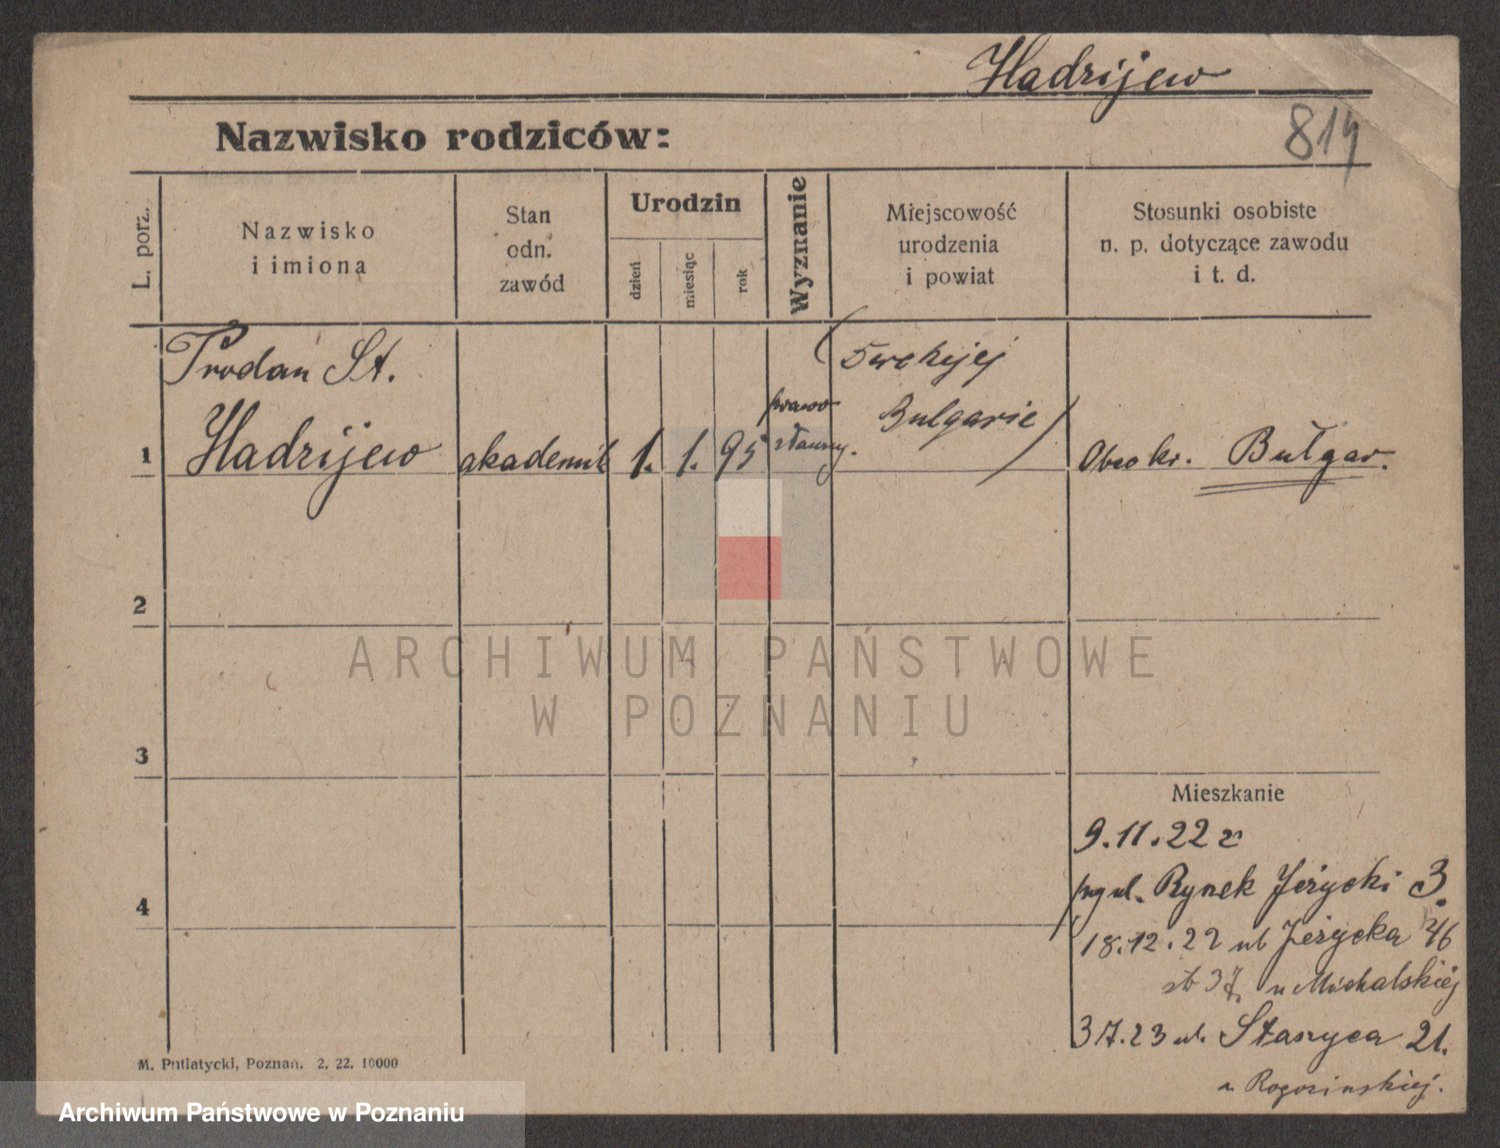 Hadrijew
814
Nazwisko rodziców:
L. porz.
Nazwisko
i imiona
Stan
odn.
zawód
Urodzin
dzień
miesiąc
rok
Wyznanie
Miejscowość
urodzenia
i powiat
Stosunki osobiste
n. p. dotyczące zawodu
i t. d.
1
Prodan St.
Hadrijew
akademik
1.
1.
95
prawo
sławny.
Bulgarie
Obco kr. Bułgar.
2
3
4
Mieszkanie
9.11.22 r
ul. Rynek Jeżycki 3.
18.12.22 ul Jeżycka 46
u Michalskiej
3 7.23 ul. Staszyca 21.
u Rogozinskiej.
M. Putiatycki, Poznań. 2. 22. 10000
ARCHIWUM PAŃSTWOWE
W POZNANIU
Archiwum Państwowe w Poznaniu